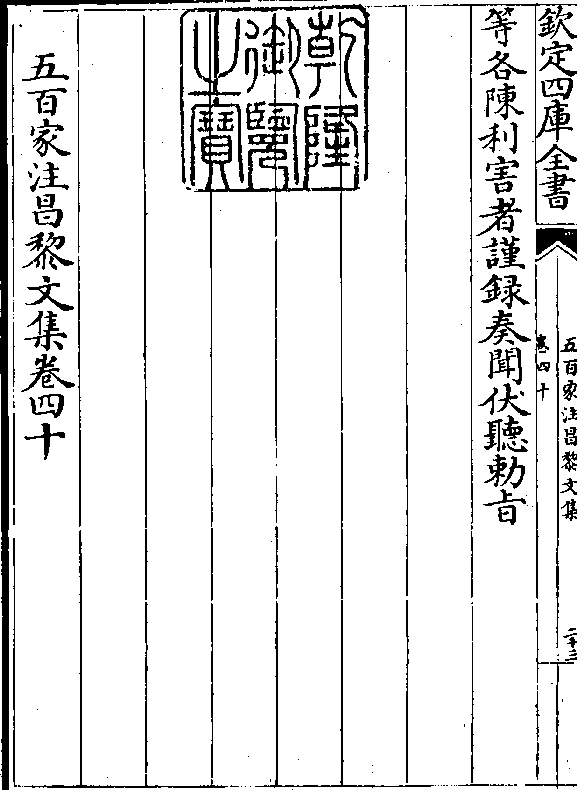 欽定四庫全書
五百家注昌黎文集
卷四十
二十三
等各陳利害者謹録奏聞伏聽勅旨
乾隆
御覽
之寶
五百家注昌黎文集卷四十